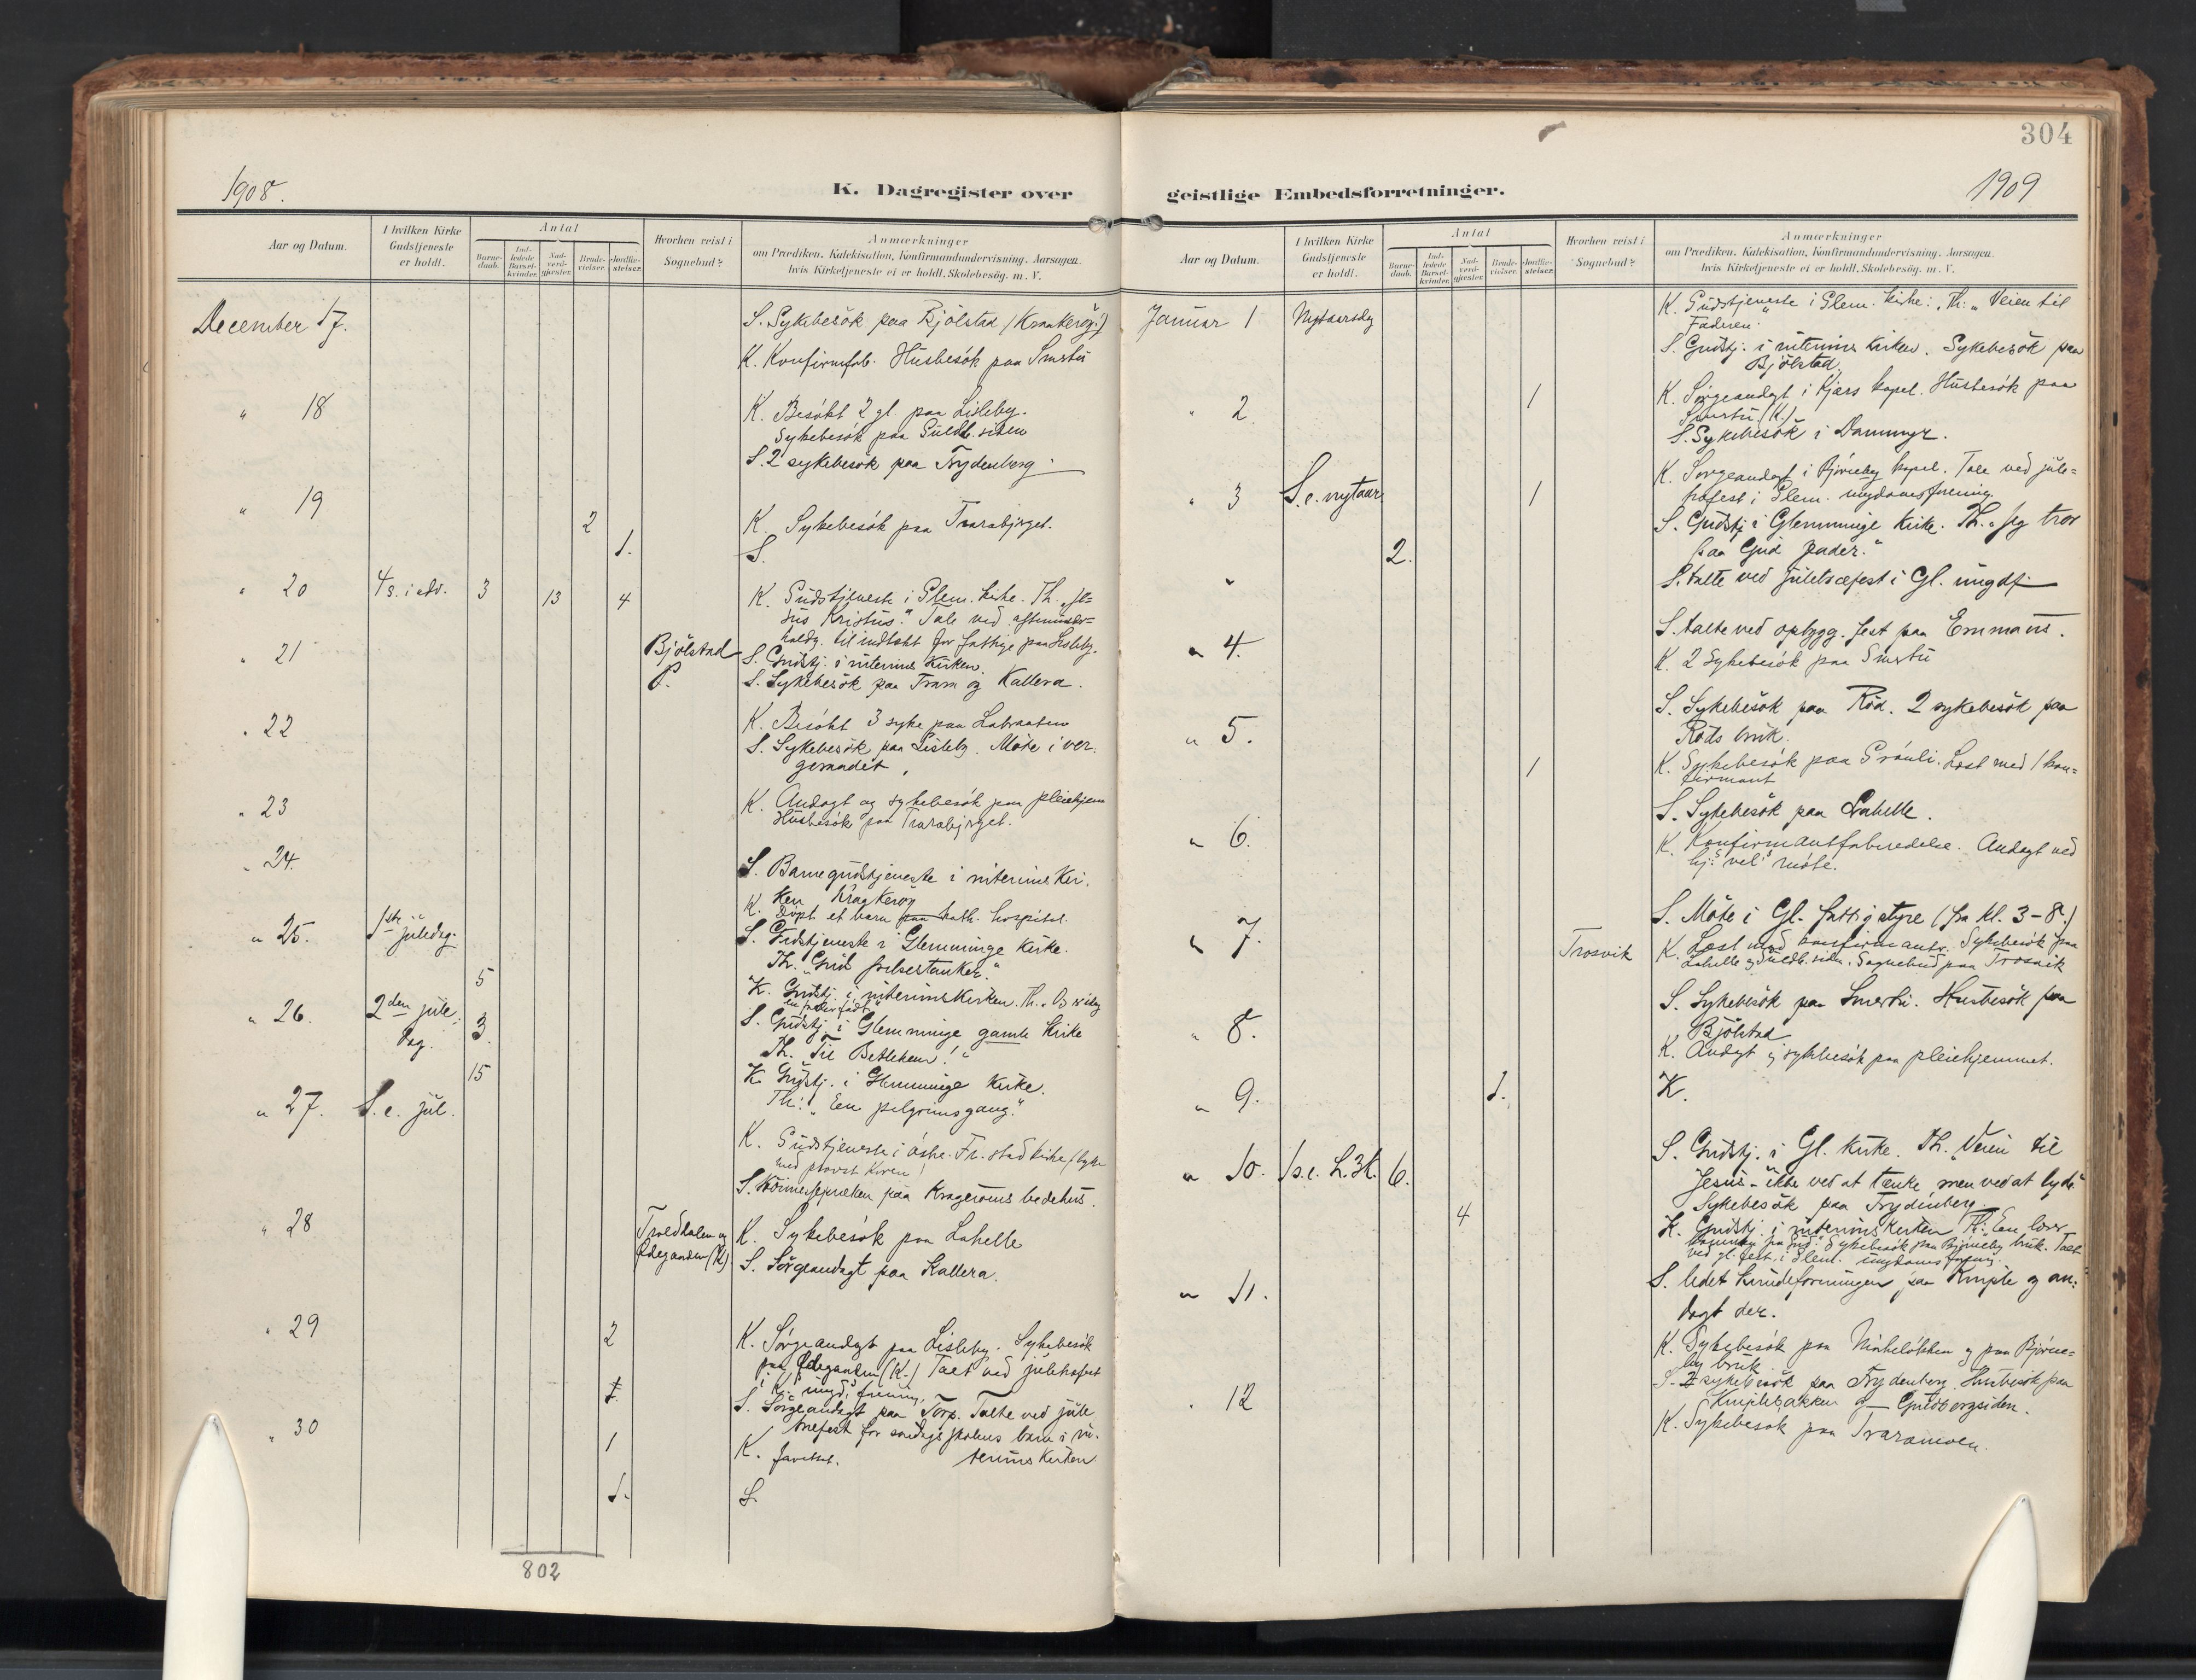 304
1908.
K. Dagregister over
Aar og Datum.
I hvilken Kirke Gudstjeneste er holdt.
Antal
Barne-daab.
Ind-ledede Barsel-kvinder.
Nad-verd-gjester.
Brude-vielser.
Jordfæ-stelser.
Hvorhen reist i Sognebud?
Anmærkninger
om Prædiken. Katekisation, Konfirmandundervisning. Aarsagen.
hvis Kirketjeneste ei er holdt. Skolebesög. m. V.
December 17.
S. Sykebesök paa Bjölstad (Krankerög.)
K. Konfirmfob. Husbesök paa Smertu
" 18
K. Besökt 2 gl. paa Lisleby.
Sykebesök paa Guldb. siden
S. 2 sykebesök paa Frydenberg
" 19
2
K. Sykebesök paa Trarabjrget.
1.
S.
" 20 4 s. i adv. 3 13 4
K. Gudstjeneste i Glem. kirke. Th. "Je=
sus Kristus." Tale ved aftenunder=
holdg. til indtækt for fattige paa Lisleby.
" 21 Bjölstad
S. Gudstj. i interims kirken
P.
S. Sykebesök paa Trara og Kallera.
" 22
K. Besökt 3 syke paa Labraaten
S. Sykebesök paa Lisleby. Möte i ver-
geraadet.
" 23
K. Andagt og sykebesök paa pleiehjem
Husbesök paa Trarabjrget.
" 24.
S. Barnegudstjeneste i interims kir.
ken Kragkeröy
K. Döpt et barn paa kath. hospital.
" 25. 1ste juledag.
S. Gudstjeneste i Glemminge kirke.
Th. "Gud frelsertanker."
5
K. Gudstj. i interimskirken. Th.
" 26. 2den jule-
dag. 3.
S. Gudstj. i Glemminge gamle kirke
Th. "Til Betlehem!"
15
K. Gudstj. i Glemminge kirke.
Th: "Een pilgrimsgang."
" 27. S. e. jul.
K. Gudstjeneste i östre Fr. stad kirke (byte
med provst Koren)
S. paa Kragerøens bedehus.
" 28 Troldhalen og
Ødegarden (K)
K. Sykebesök paa Lahelle
S. Sörgeandagt paa Kallera.
" 29
2
K. Sörgeandagt paa Lisleby. Sykebesök
paa Ødegarden (K.) Talt ved juletrefest
1.
S. Sörgeandagt paa Torp. Talte ved jule
trefest for söndagsskolens barn i in-
terims kirken
" 30
1
K.
1.
S.
802
1909
geistlige Embedsforretninger.
Aar og Datum.
I hvilken Kirke Gudstjeneste er holdt.
Antal
Barne-daab.
Ind-ledede Barsel-kvinder.
Nad-verd-gjester.
Brude-vielser.
Jordfæ-stelser.
Hvorhen reist i Sognebud?
Anmærkninger
om Prædiken. Katekisation, Konfirmandundervisning. Aarsagen.
hvis Kirketjeneste ei er holdt. Skolebesög. m. V.
Januar 1 Nytaarsdag
K. Gudstjeneste i Glem. kirke: Th: "Veien til
Faderen.
S. Gudstj. i interims kirken. Sykebesök paa
Bjölstad.
" 2. 1
K. Sörgeandagt i Kjærs kapel. Husbesök paa
Smertu (K.)
S. Sykebesök i Dammyr.
" 3 S. e. nytaar 1
K. Sorgeandagt i Björneby kapel. Tale ved jule=
trefest i Glem. ungdomsforening.
2.
S. Gudstj i Glemminge kirke. Th. "Jeg tror
paa Gud fader."
"
S. talte ved juletræfest i Gl. ungdf.
" 4.
S. talte ved opbygg. fest paa Emmaus.
K. 2 sykebesök paa Smertu
" 5.
S. Sykebesök paa Röd. 2 sykebesök paa
Röds bruk.
1
K. Sykebesök paa Grönli. Læst med 1 kon=
firmant
" 6.
S. Sykebesök paa Lahelle.
K. Konfirmantforberedelse. Andagt ved
hj: "vel" möte.
" 7. Trosvik
S. Möte i Gl. fattigstyre (fra kl. 3-8.)
K. Læst med konfirmanter. Sykebesök paa
Lahelle og Guldb. siden. Sognebud paa Trosvik
" 8.
S. Sykebesök paa Smertu. Husbesök paa
Bjölstad
K. Andagt og sykebesök paa pleiehjemmet.
" 9. 1.
K.
" 10. 1 s. e. H. 3 K. 6.
S. Gudstj. i Gl. kirke. Th. "Veien til
Jesus - ikke ved at tænke men ved at lyde"
Sykebesök paa Frydenberg
4
K. Gudstj. i interims kirken Th: "Een
Sykebesök paa Björneby bruk. Talt
ved gl. fest i Glem. ungdomsforening.
" 11.
S. ledet kvindeforeningen paa Kniple og an-
dagt der.
K. Sykebesök paa Nabbelökken og paa Björne=
by bruk
" 12
S. 2 sykebesök paa Frydenberg. Husbesök paa
Kniplebakken og Guldborgsiden.
K. Sykebesök paa Traramoen.